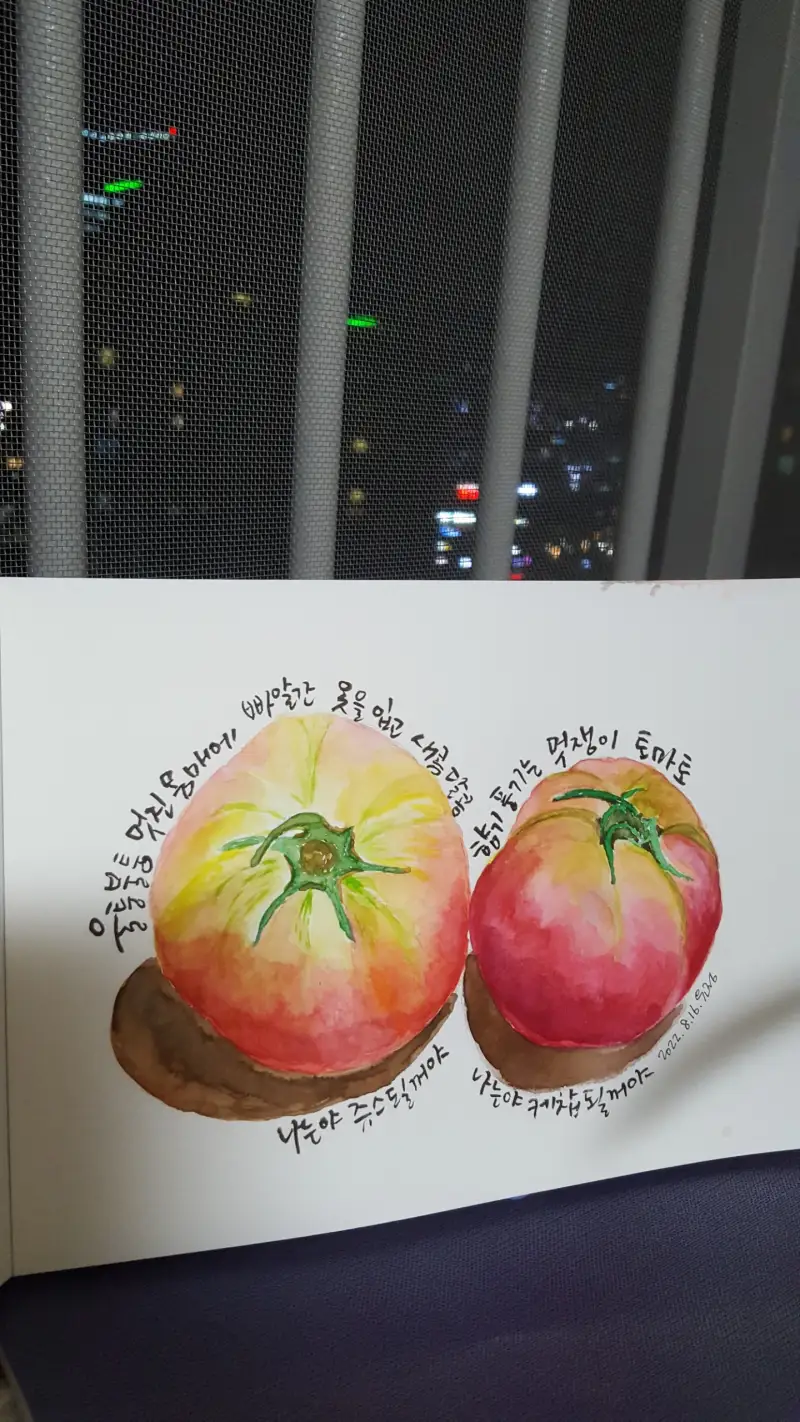 울퉁불퉁 멋진 몸매에 빠알간 옷을 입고 새콤달콤
향기 풍기는 멋쟁이 토마토
나는야 쥬스될꺼야
나는야 케찹될꺼야
2022. 8. 16.